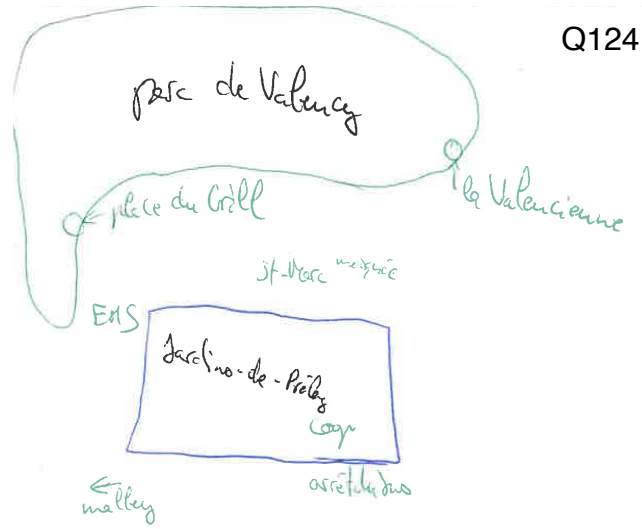 Q124
parc de Valency
place du Grill
la Valencienne
St-Marc
EMS
Jardins-de-Prélaz
Coop
arrêt du bus
malley